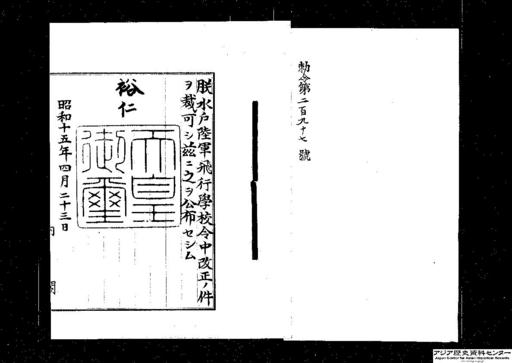 勅令第二百九十七號
朕水戸陸軍飛行學校令中改正ノ件
ヲ裁可シ茲ニ之ヲ公布セシム
裕仁
天皇御璽
昭和十五年四月二十三日
内閣
アジア歴史資料センター
Japan Center for Asian Historical Records